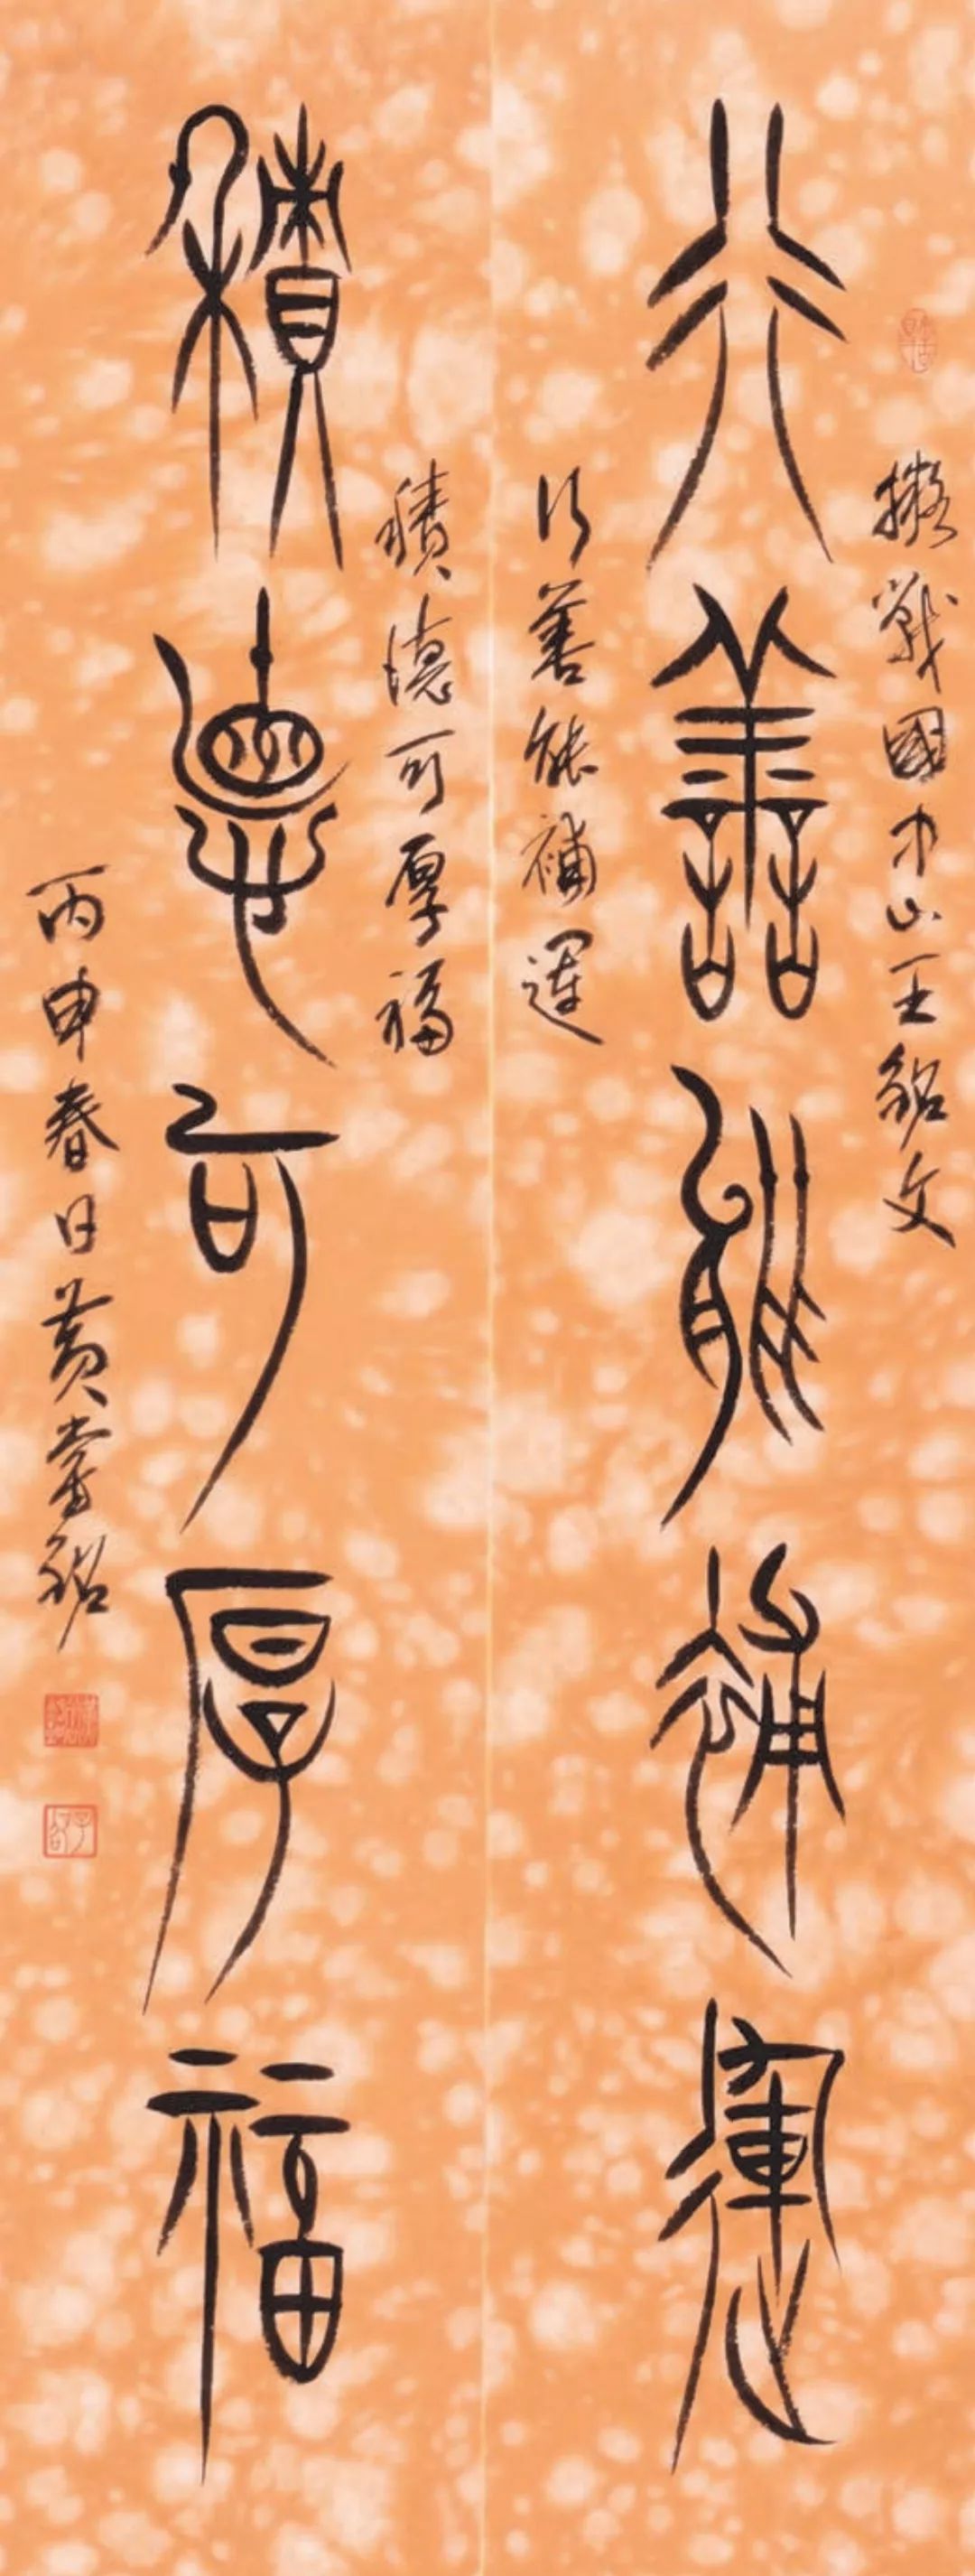 擬戰國中山王銘文
行善能補運
行善能補運
積德可厚福
積德可厚福
丙申春日黃嘗銘